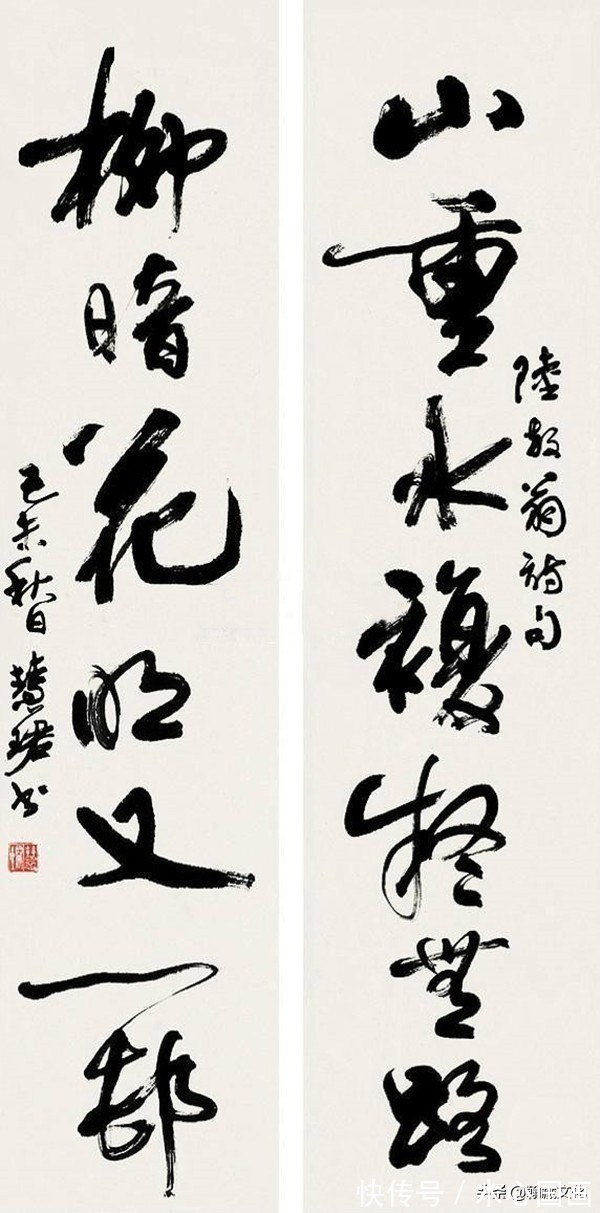 山重水複疑無路
陸放翁詩句
柳暗花明又一邨
己未秋日慧珺书
快传号 /